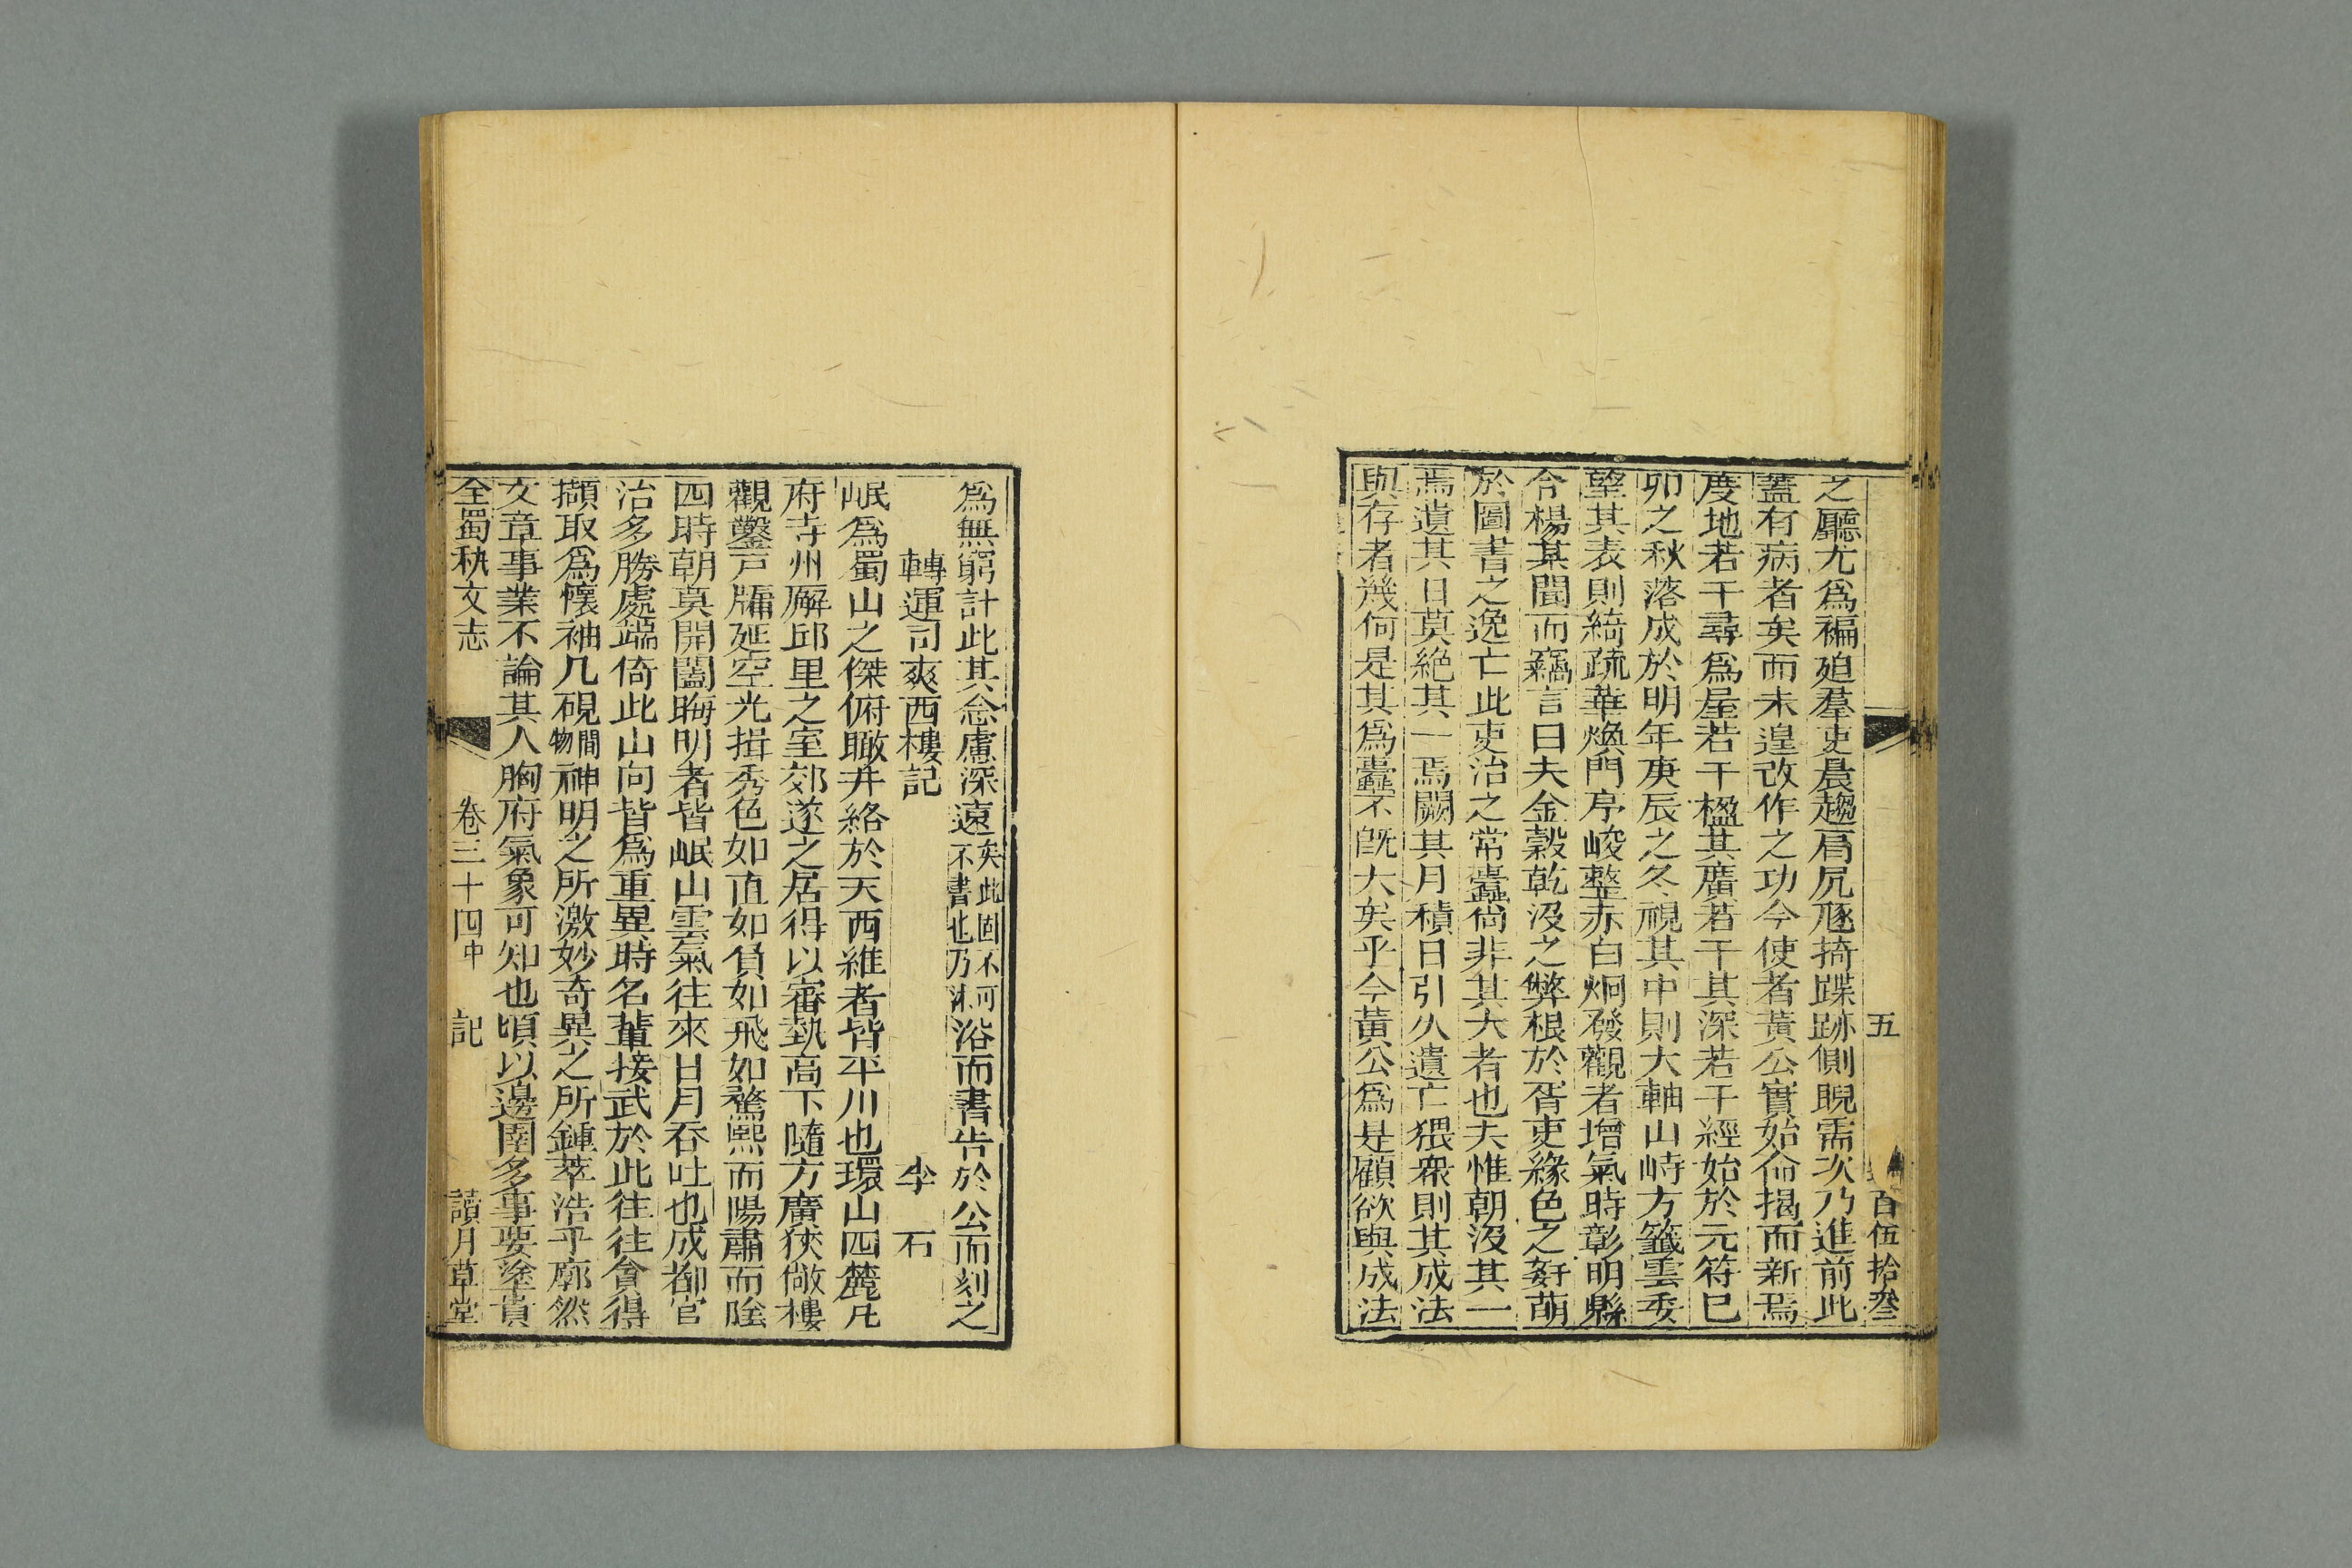 五 百伍拾叄
之廳尤爲褊廹羣吏晨趨肩尻豗掎蹀跡側睨需次乃進前此
蓋有病者矣而未遑改作之功今使者黃公實始侖揭而新焉
度地若干尋爲屋若干楹其廣若干其深若干經始於元符已
卯之秋落成於明年庚辰之冬視其中則大軸山峙方籤雲委
望其表則綺疏華煥門序峻整赤白炯發觀者增氣時彰明縣
令楊某聞而竊言曰夫金穀乾沒之弊根於胥吏緣色之姦萌
於圖書之逸亡此吏治之常蠹尙非其大者也夫惟朝沒其一
焉遺其日莫絕其一焉闕其月積日引久遺亡猥衆則其成法
與存者幾何是其爲蠹不旣大矣乎今黃公爲是顧欲與成法
爲無窮計此其念慮深遠矣此固不可不書也乃沐浴而書告於公而刻之
轉運司爽西樓記 李石
岷爲蜀山之傑俯瞰井絡於天西維者皆平川也環山四麓凡
府寺州廨邱里之室郊遂之居得以審埶高下隨方廣狹儆樓
觀鑿戸牖延空光揖秀色如直如負如飛如驁熙而陽肅而陰
四時朝莫開闔晦明者皆岷山雲氣往來日月吞吐也成都官
治多勝處端倚此山向皆爲重異時名輩接武於此往往貪得
擷取爲懷袖几硯間物神明之所激妙奇異之所鍾萃浩乎廓然
文章事業不論其人胸府氣象可知也頃以邊圉多事要塗貴
全蜀秇文志 卷三十四中 記 讀月草堂